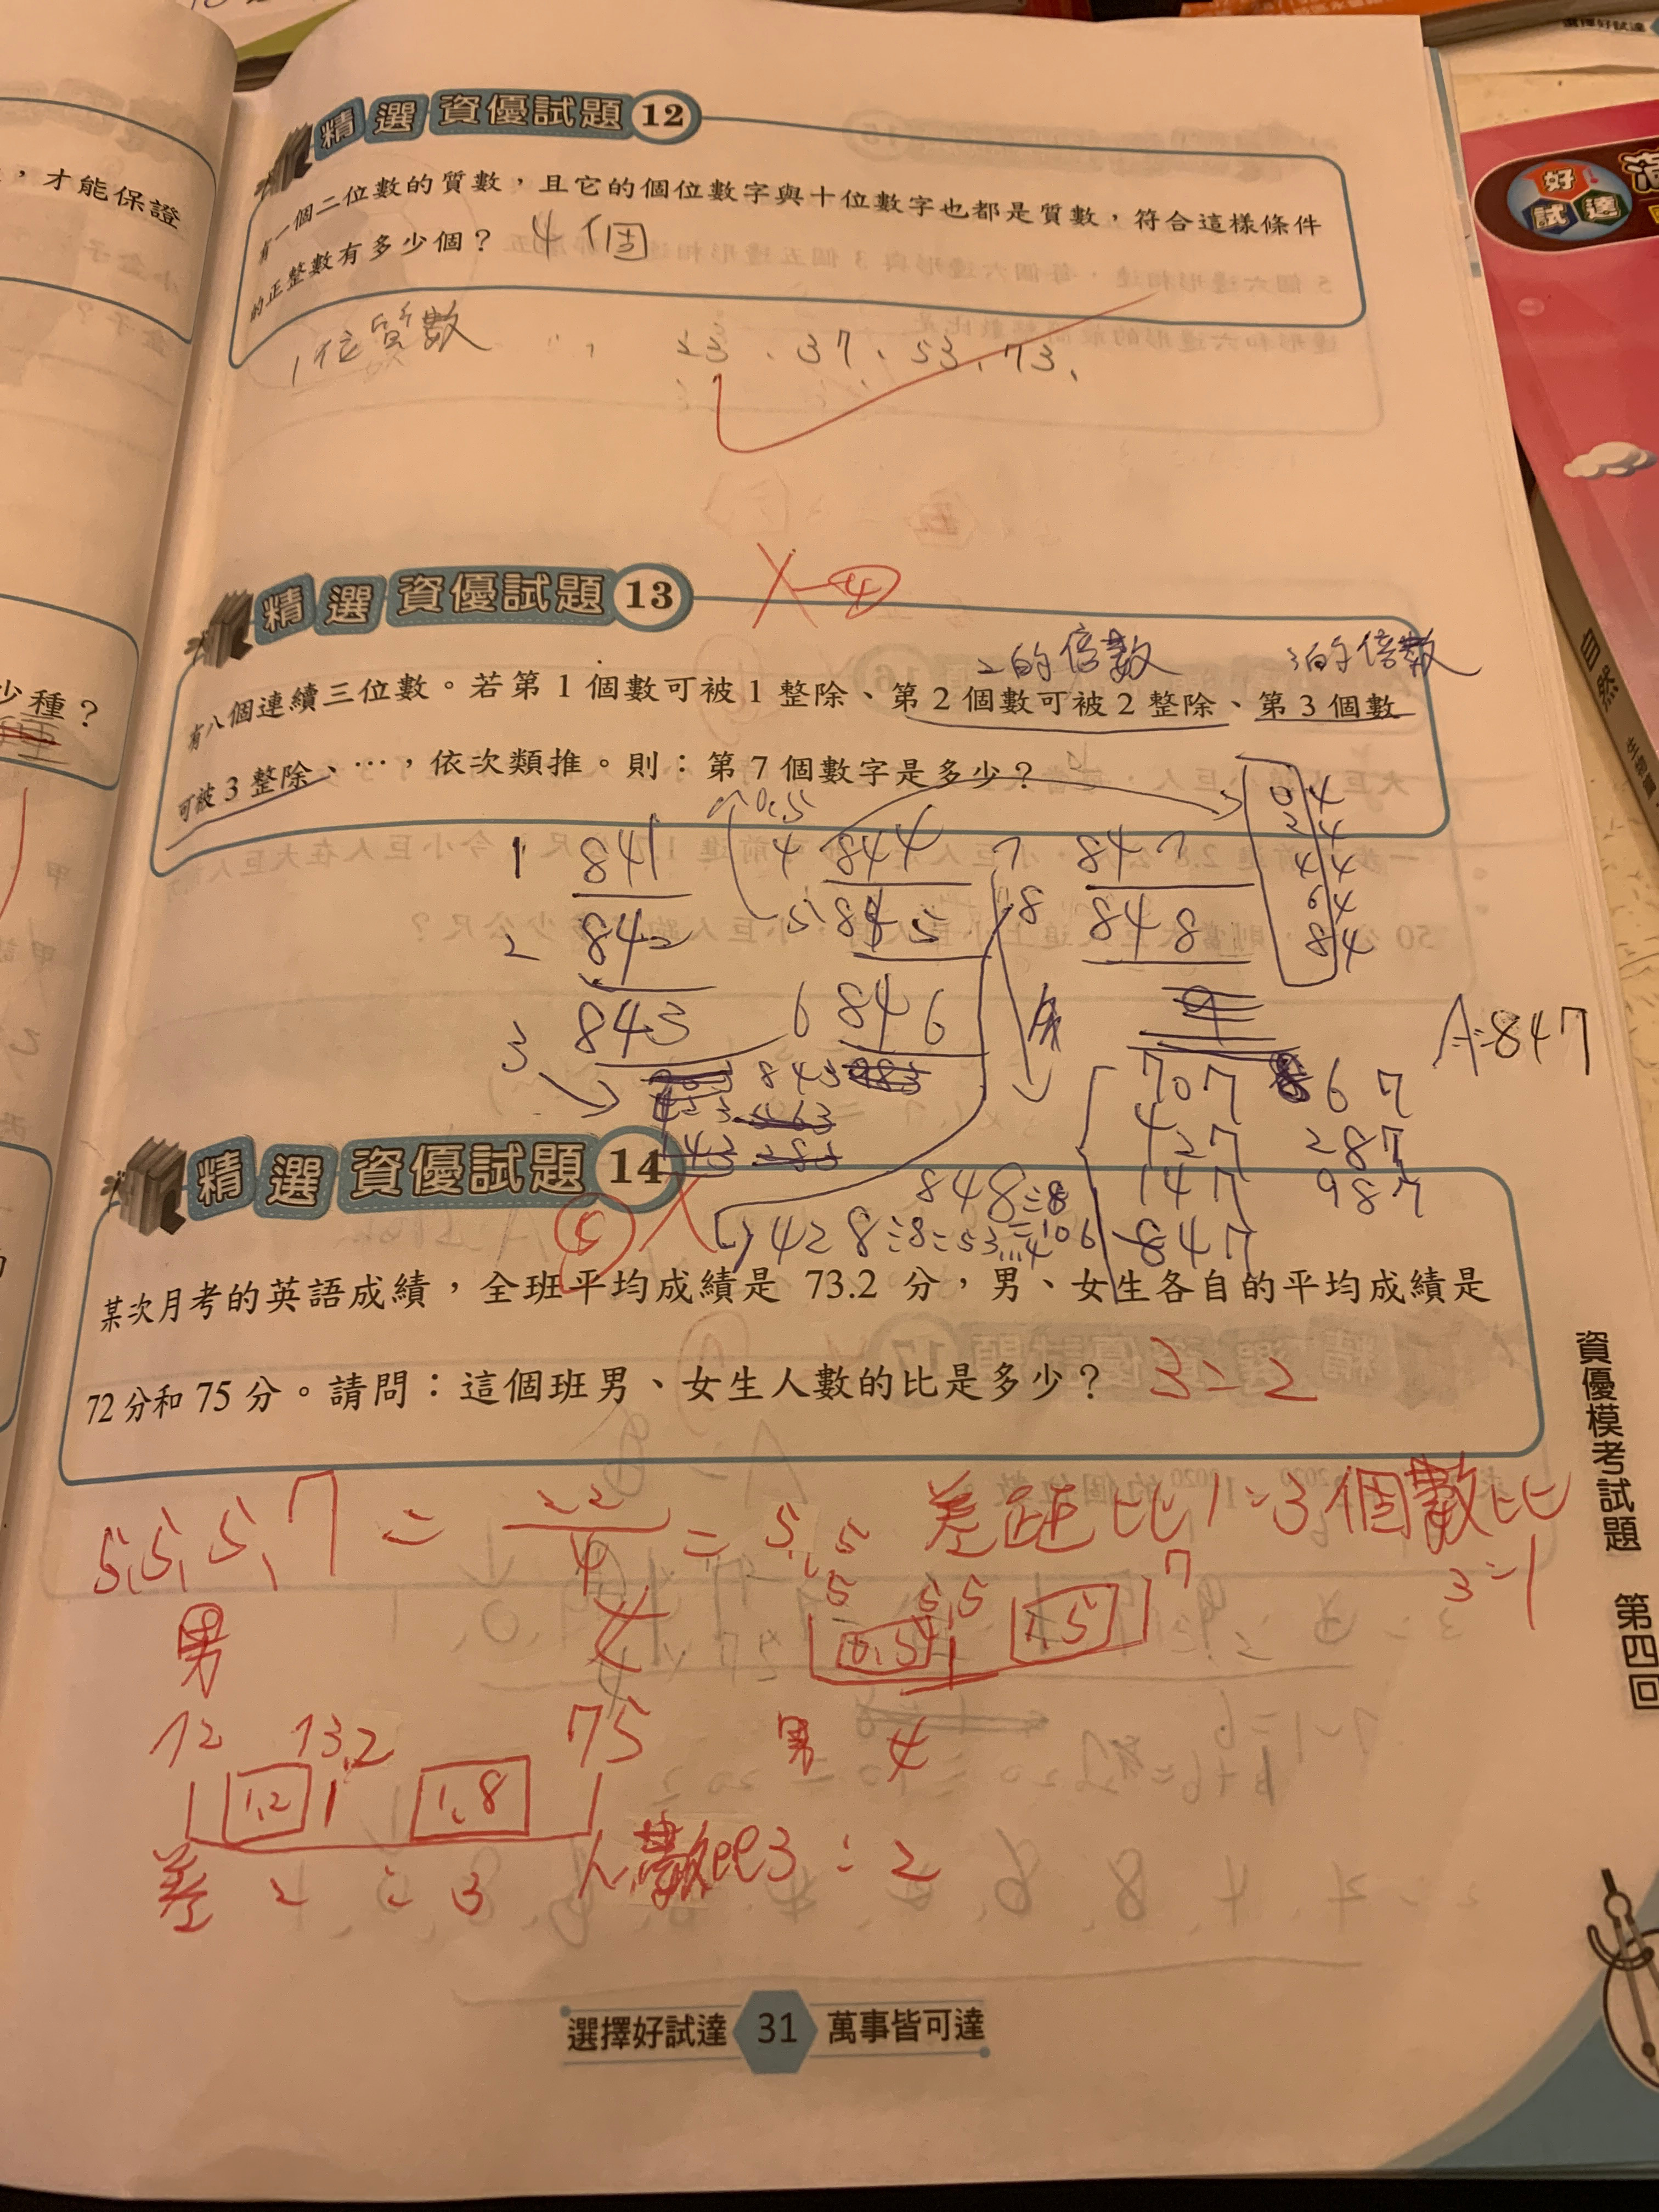 選擇好試達
，才能保證
少種？
精選 資優試題 12
有一個二位數的質數，且它的個位數字與十位數字也都是質數，符合這樣條件
的正整數有多少個？ 4個
1位質數 23、37、53、73、
好試達
自然
精選 資優試題 13
X 4
2的倍數 3的倍數
有八個連續三位數。若第1個數可被1整除、第2個數可被2整除、第3個數
可被3整除、…，依次類推。則：第7個數字是多少？
1 841 4 844 7 847
2 842 5 845 8 848
3 843 6 846
04
24
44
64
84
A=847
843
707 867
427 287
147 987
847
848÷8=106
428÷8=53…4
精選 資優試題 14
某次月考的英語成績，全班平均成績是 73.2 分，男、女生各自的平均成績是
72分和75分。請問：這個班男、女生人數的比是多少？ 3:2
5,5,5,7 = 22/4 = 5.5 差距比1:3個數比
3:1
5 5.5 7
0.5 1.5
男
72 73.2 75
1.2 1.8
男 4
差 2:3 人數比3:2
資優模考試題 第四回
選擇好試達 31 萬事皆可達